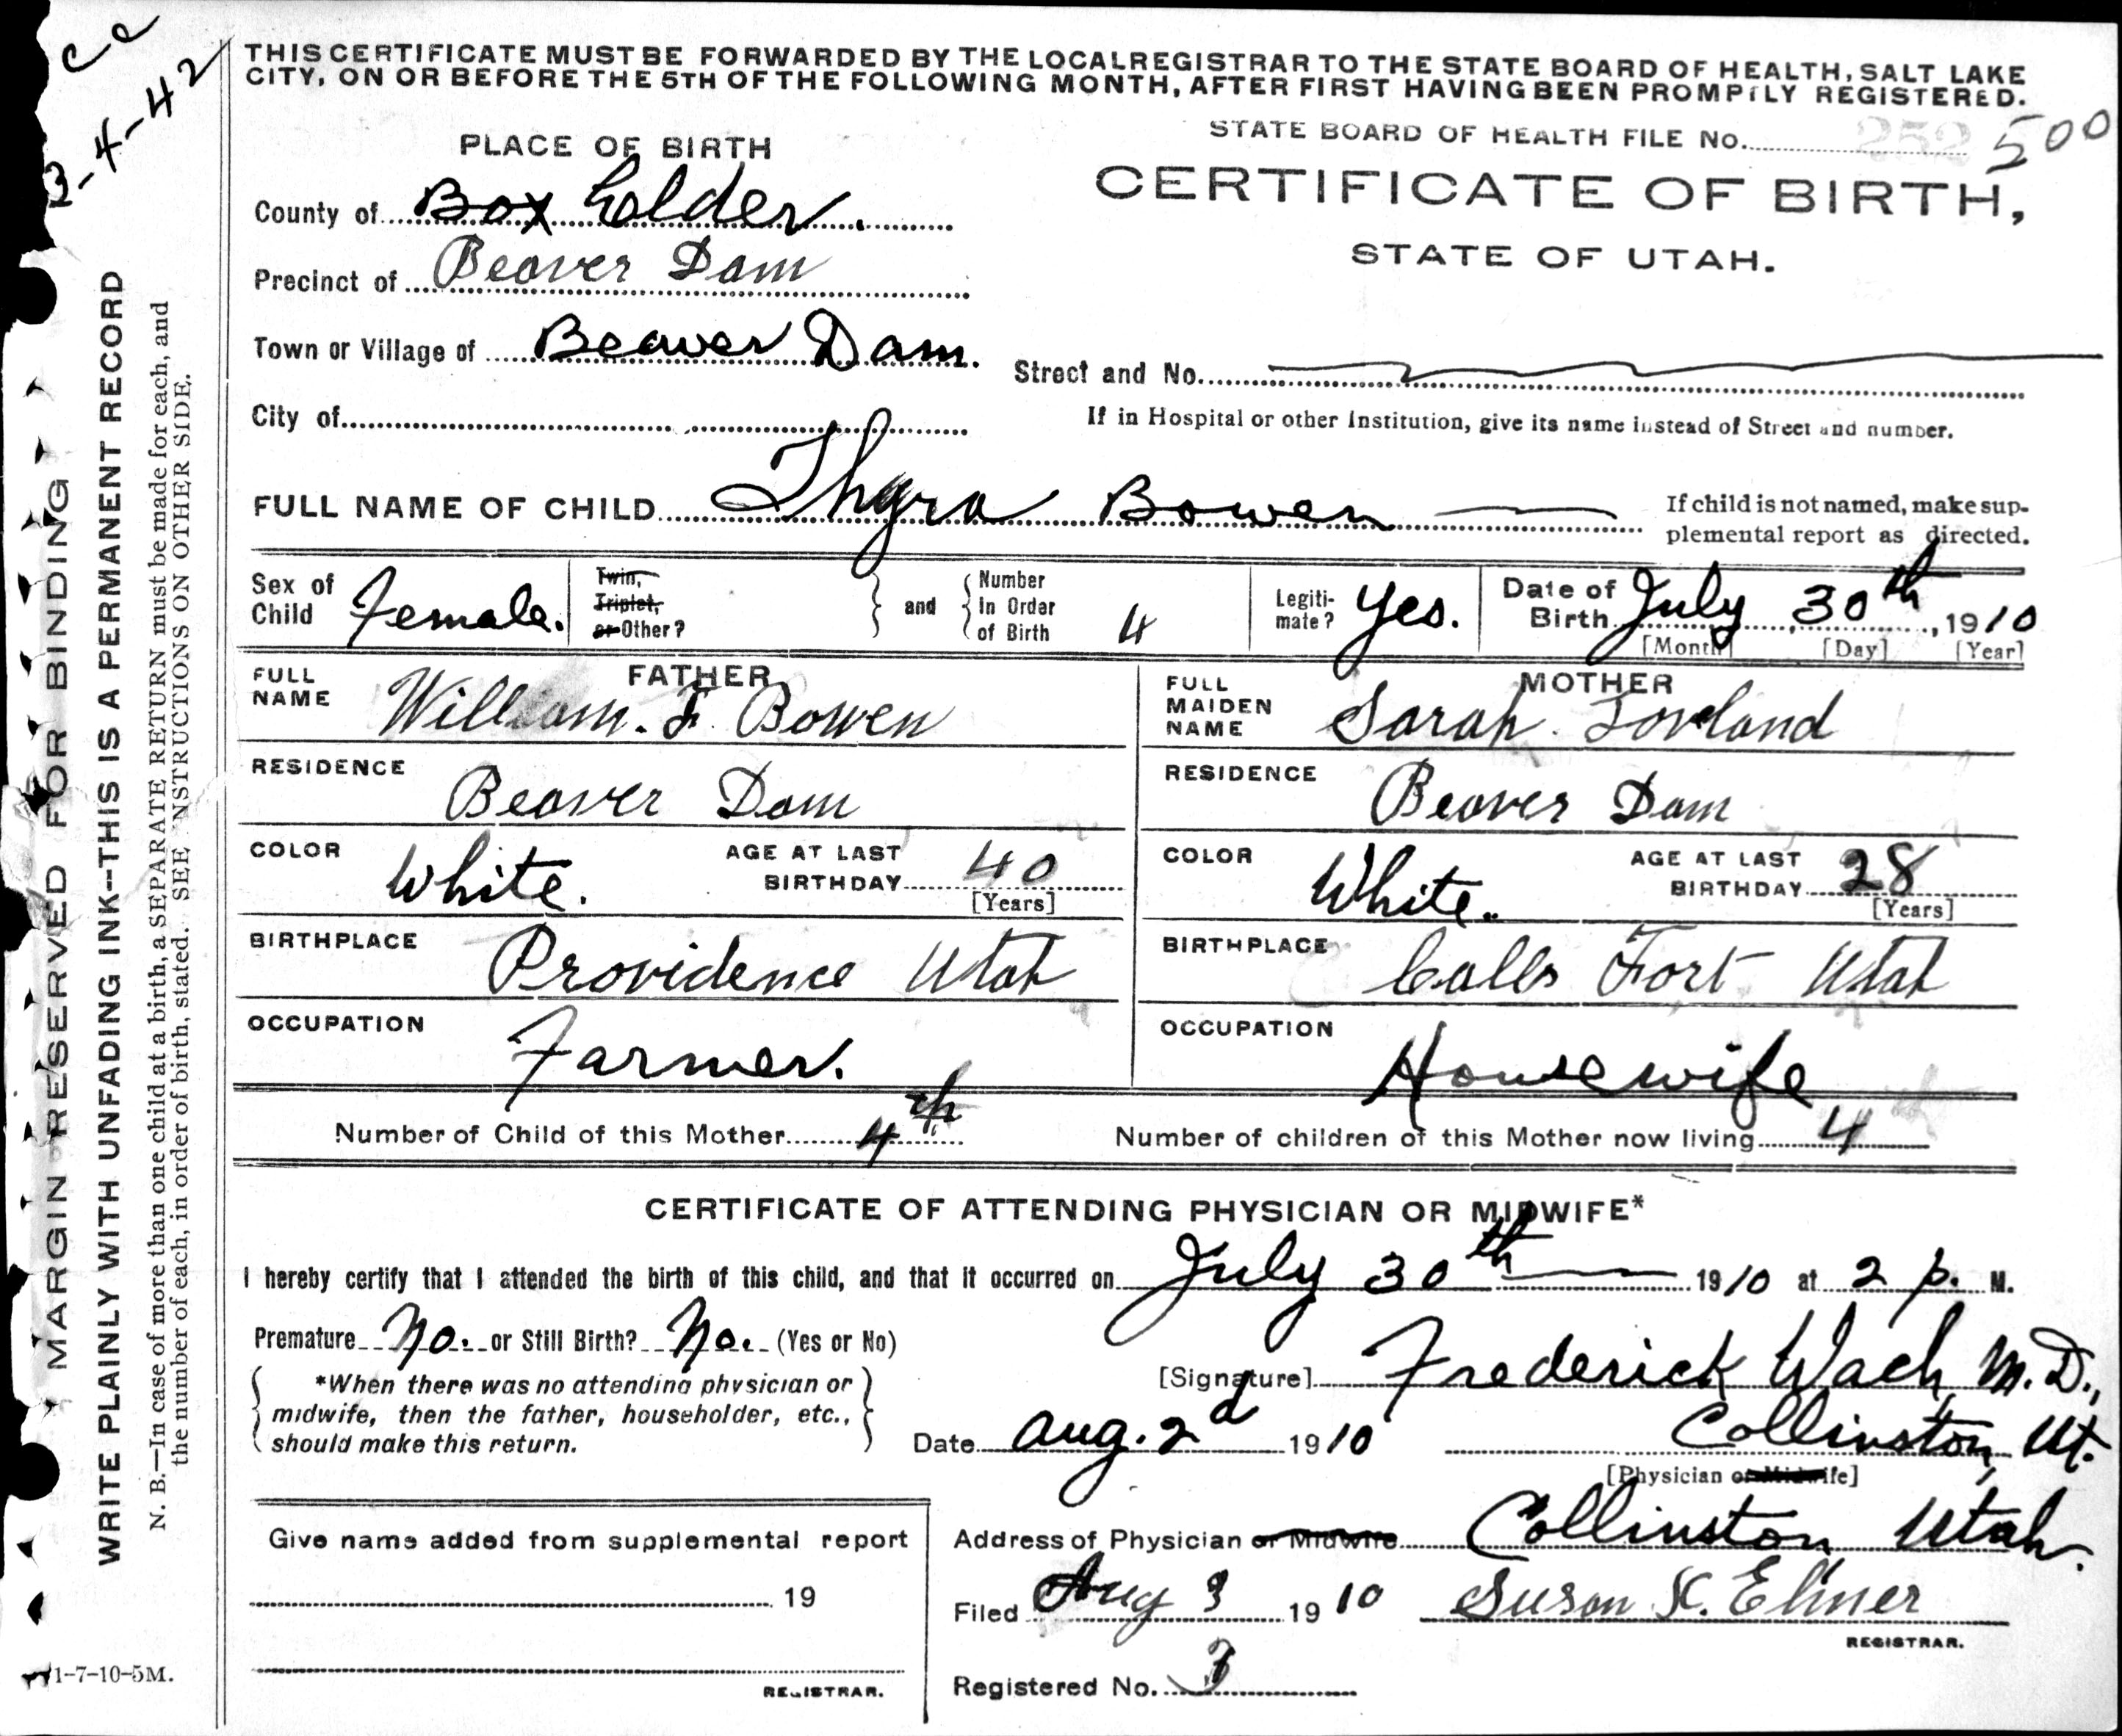 ca
3-4-42
THIS CERTIFICATE MUST BE FORWARDED BY THE LOCAL REGISTRAR TO THE STATE BOARD OF HEALTH, SALT LAKE
CITY, ON OR BEFORE THE 5TH OF THE FOLLOWING MONTH, AFTER FIRST HAVING BEEN PROMPTLY REGISTERED.
STATE BOARD OF HEALTH FILE No. 252 500
PLACE OF BIRTH
CERTIFICATE OF BIRTH,
STATE OF UTAH.
County of Box Elder.
Precinct of Beaver Dam
Town or Village of Beaver Dam.
Street and No.
City of
If in Hospital or other Institution, give its name instead of Street and number.
FULL NAME OF CHILD Thyra Bowen
If child is not named, make sup-
plemental report as directed.
Sex of Child Female.
Twin, Triplet, or Other?
and
Number In Order of Birth 4
Legiti-mate? Yes.
Date of Birth July 30th, 1910
[Month] [Day] [Year]
FATHER
FULL NAME William. F. Bowen
RESIDENCE Beaver Dam
COLOR White. AGE AT LAST BIRTHDAY 40 [Years]
BIRTHPLACE Providence Utah
OCCUPATION Farmer.
MOTHER
FULL MAIDEN NAME Sarah. Loveland
RESIDENCE Beaver Dam
COLOR White. AGE AT LAST BIRTHDAY 28 [Years]
BIRTHPLACE Calls Fort Utah
OCCUPATION Housewife
Number of Child of this Mother 4th
Number of children of this Mother now living 4
CERTIFICATE OF ATTENDING PHYSICIAN OR MIDWIFE*
I hereby certify that I attended the birth of this child, and that it occurred on July 30th 1910 at 2 p. M.
Premature No. or Still Birth? No. (Yes or No)
*When there was no attending physician or
midwife, then the father, householder, etc.,
should make this return.
[Signature] Frederick Wach, M.D.,
Date Aug. 2d 1910 Collinston, Ut.
[Physician or Midwife]
Give name added from supplemental report
19
REGISTRAR.
Address of Physician or Midwife Collinston Utah.
Filed Aug 3 1910 Susan K. Elmer
REGISTRAR.
Registered No. 3
MARGIN RESERVED FOR BINDING
WRITE PLAINLY WITH UNFADING INK--THIS IS A PERMANENT RECORD
N. B.—In case of more than one child at a birth, a SEPARATE RETURN must be made for each, and
the number of each, in order of birth, stated. SEE INSTRUCTIONS ON OTHER SIDE.
1-7-10-5M.